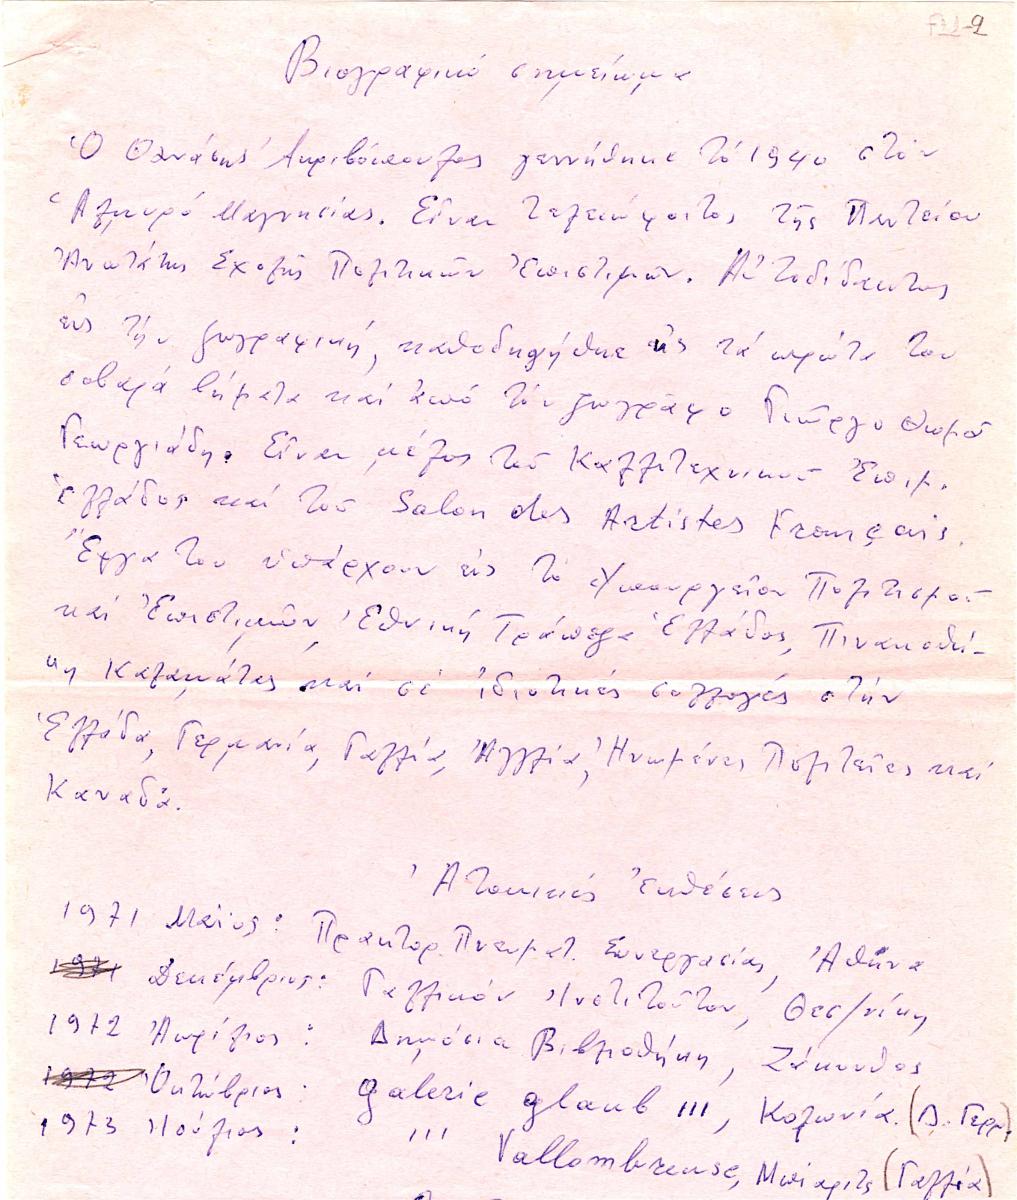 Βιογραφικό σημείωμα
Ὁ Θανάσης Ἀκριβόπουλος γεννήθηκε τό 1940 στόν
Ἁλμυρό Μαγνησίας. Εἶναι τελειόφοιτος τῆς Παντείου
Ἀνωτάτης Σχολῆς Πολιτικῶν Ἐπιστημῶν. Αὐτοδίδακτος
εἰς τήν ζωγραφική, καθοδηγήθηκε εἰς τά πρῶτα του
σοβαρά βήματα καί ἀπό τόν ζωγράφο Γιῶργο Θωμᾶ
Γεωργιάδη. Εἶναι μέλος τοῦ Καλλιτεχνικοῦ Ἐπιμ.
Ἑλλάδος καί τοῦ Salon des Artistes Français.
Ἔργα του ὑπάρχουν εἰς τό Ὑπουργεῖον Πολιτισμοῦ
καί Ἐπιστημῶν, Ἐθνική Τράπεζα Ἑλλάδος, Πινακοθή-
κη Καλαμάτας καί σέ ἰδιοτικές συλλογές στήν
Ἑλλάδα, Γερμανία, Γαλλία, Ἀγγλία, Ἡνωμένες Πολιτεῖες καί
Καναδᾶ.
Ἀτομικές Ἐκθέσεις
1971 Μαΐος: Πρακτορ. Πνευματ. Συνεργασίας, Ἀθήνα
1971 Δεκέμβριος: Γαλλικόν Ἰνστιτοῦτον, Θεσ/νίκη
1972 Ἀπρίλιος: Δημόσια Βιβλιοθήκη, Ζάκυνθος
1972 Ὀκτώβριος: Galerie glaub ΙΙΙ, Κολωνία (Δ. Γερμ.)
1973 Ἰούλιος: ΙΙΙ Vallombreuse, Μπιαρίτς (Γαλλία)